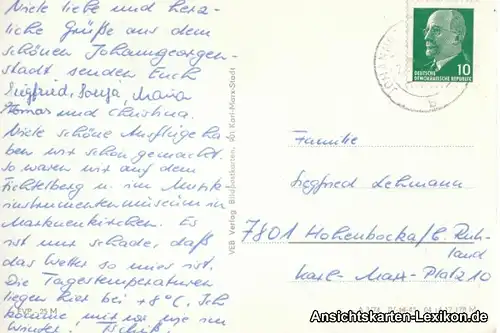 Viele liebe und herz-
liche Grüße aus dem
schönen Johanngeorgen-
stadt senden Euch
Siegfried, Sonja, Maria
Thomas und Christina.
Viele schöne Ausflüge ha-
ben wir schon gemacht.
so waren wir auf dem
Fichtelberg u. im Musik-
instrumentenmuseum in
Markneukirchen. Es
ist nur schade, daß
das Wetter so mies ist.
Die Tagestemperaturen
liegen hier bei +8°C. Ich
komme mir vor wie im
Winter! Tschüß
EVP -,25 M
VEB Verlag Bildpostkarten, Karl-Marx-Stadt
10
DEUTSCHE
DEMOKRATISCHE REPUBLIK
b
Familie
Siegfried Lehmann
7801 Hohenbocka/b. Ruh-
land
Karl-Marx-Platz 10
Ansichtskarten-Lexikon.de